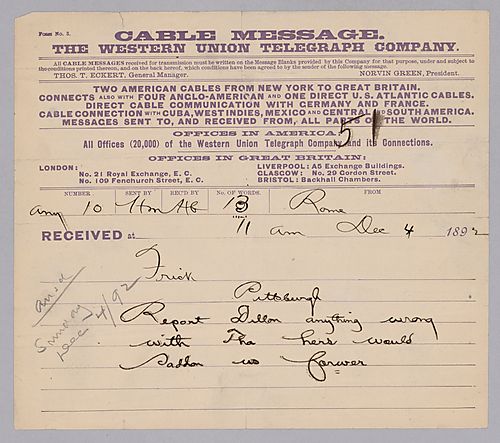 FORM NO. 2.
CABLE MESSAGE.
THE WESTERN UNION TELEGRAPH COMPANY.
All CABLE MESSAGES received for transmission must be written on the Message Blanks provided by this Company for that purpose, under and subject to
the conditions printed thereon, and on the back hereof, which conditions have been agreed to by the sender of the following message.
THOS. T. ECKERT, General Manager. NORVIN GREEN, President.
TWO AMERICAN CABLES FROM NEW YORK TO GREAT BRITAIN.
CONNECTS ALSO WITH FOUR ANGLO-AMERICAN AND ONE DIRECT U.S. ATLANTIC CABLES.
DIRECT CABLE COMMUNICATION WITH GERMANY AND FRANCE.
CABLE CONNECTION WITH CUBA, WEST INDIES, MEXICO AND CENTRAL AND SOUTH AMERICA.
MESSAGES SENT TO, AND RECEIVED FROM, ALL PARTS OF THE WORLD.
51
OFFICES IN AMERICA:
All Offices (20,000) of the Western Union Telegraph Company and its Connections.
OFFICES IN GREAT BRITAIN:
LONDON: LIVERPOOL: A5 Exchange Buildings.
No. 21 Royal Exchange, E. C. GLASGOW: No. 29 Gordon Street.
No. 109 Fenchurch Street, E. C. BRISTOL: Backhall Chambers.
NUMBER SENT BY REC'D BY NO. OF WORDS. FROM
10 Hm HB 13 Rome
RECEIVED at 11 am Dec 4 1892
Frick
Pittburgh
Report Dillon anything wrong
with Tha hers would
Saddon us forwer
ansd
Sunday
Dec 4/92